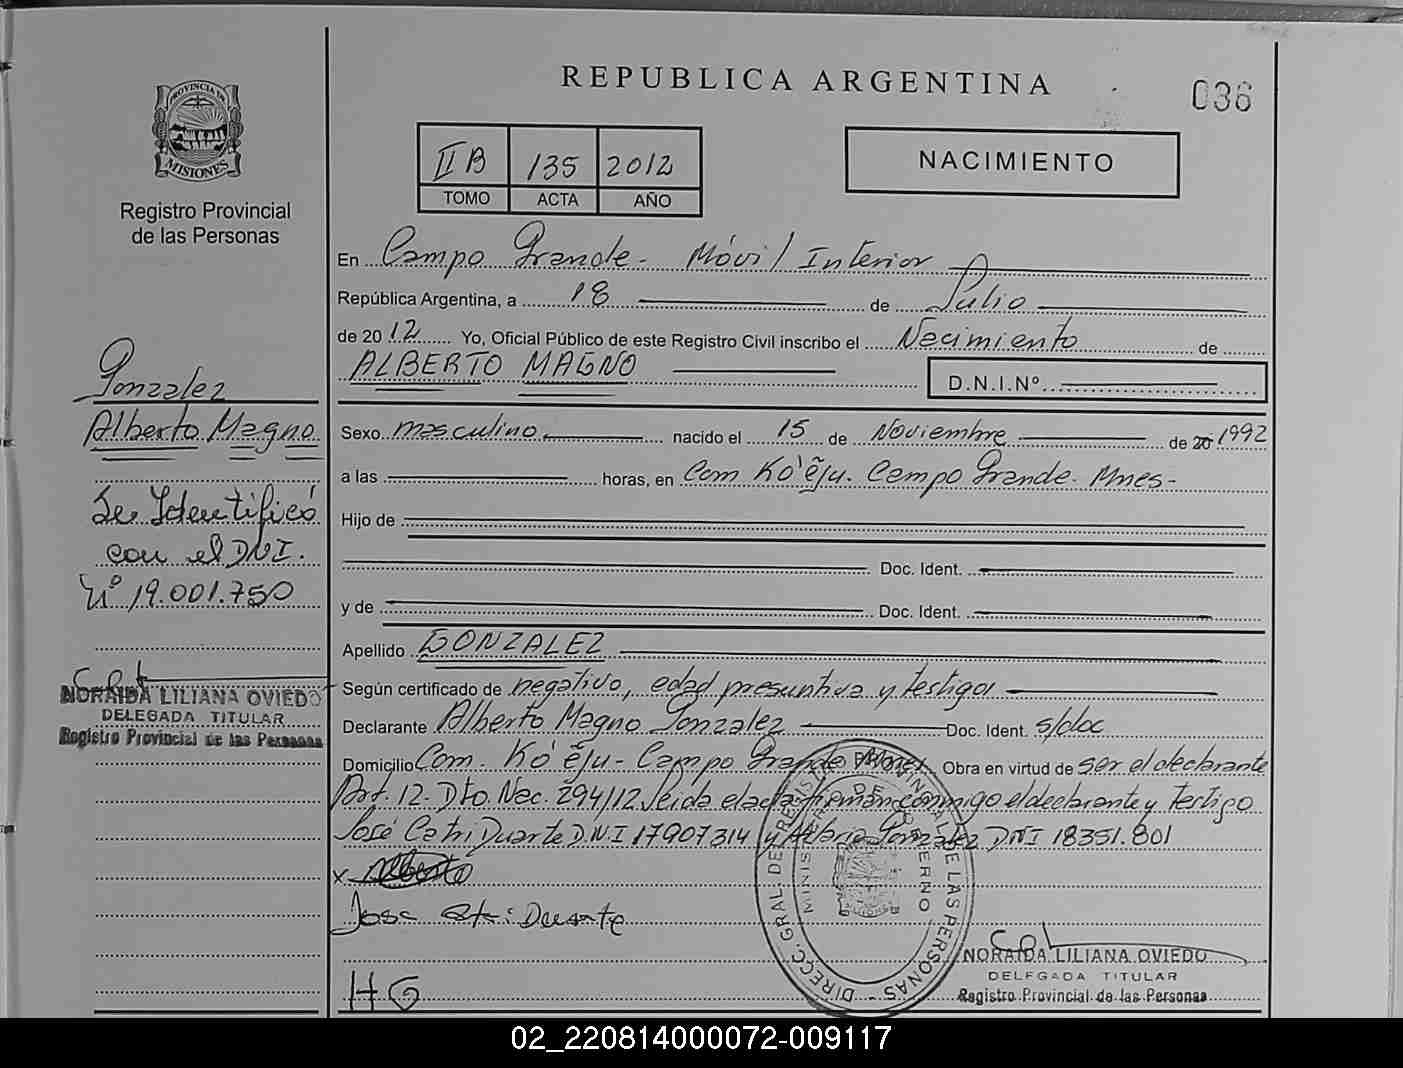 REPUBLICA ARGENTINA
036
PROVINCIA DE
MISIONES
Registro Provincial
de las Personas
II B 135 2012
TOMO ACTA AÑO
NACIMIENTO
En Campo Grande - Móvil Interior
República Argentina, a 18 de Julio
de 2012 Yo, Oficial Público de este Registro Civil inscribo el Nacimiento de
ALBERTO MAGNO
D.N.I.Nº
Gonzalez
Alberto Magno
Se Identificó
con el DNI.
Nº 19.001.750
NORAIDA LILIANA OVIEDO
DELEGADA TITULAR
Registro Provincial de las Personas
Sexo masculino nacido el 15 de Noviembre de 20 1992
a las horas, en Com Ko'ẽju. Campo Grande. Mnes-
Hijo de
Doc. Ident.
y de Doc. Ident.
Apellido GONZALEZ
Según certificado de negativo, edad presuntiva y testigos
Declarante Alberto Magno Gonzalez Doc. Ident. s/doc
Domicilio Com. Ko'ẽju - Campo Grande Mnes Obra en virtud de ser el declarante
Art. 12. Dto. Nac. 294/12. Leida el acta firman conmigo el declarante y testigo
José Catri Duarte D.N.I 17907314 y Gonzalez DNI 18351.801
x Alberto
Jose Duarte
H G
DIRECC. GRAL. DE REGISTRO PROVINCIAL DE LAS PERSONAS -
MINISTERIO DE GOBIERNO
NORAIDA LILIANA OVIEDO
DELEGADA TITULAR
Registro Provincial de las Personas
02_220814000072-009117